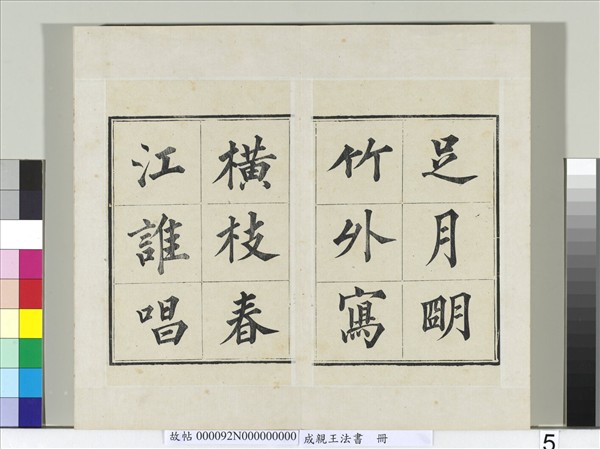 足月朙
竹外寫
橫枝春
江誰唱
故帖 000092N000000000 成親王法書 冊
5